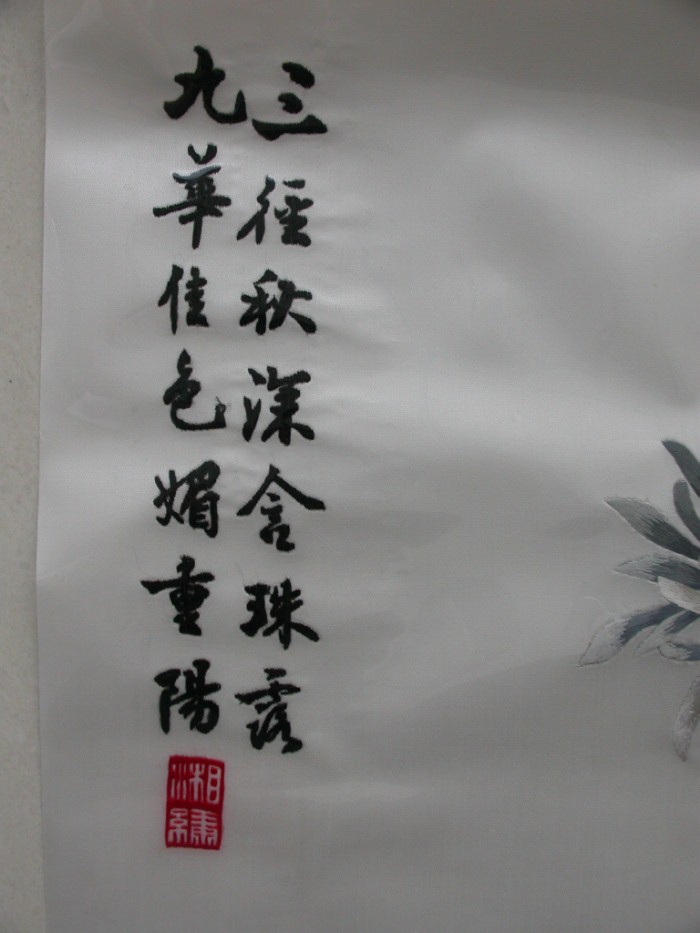 三徑秋深含珠露
九華佳色媚重陽
湘繡